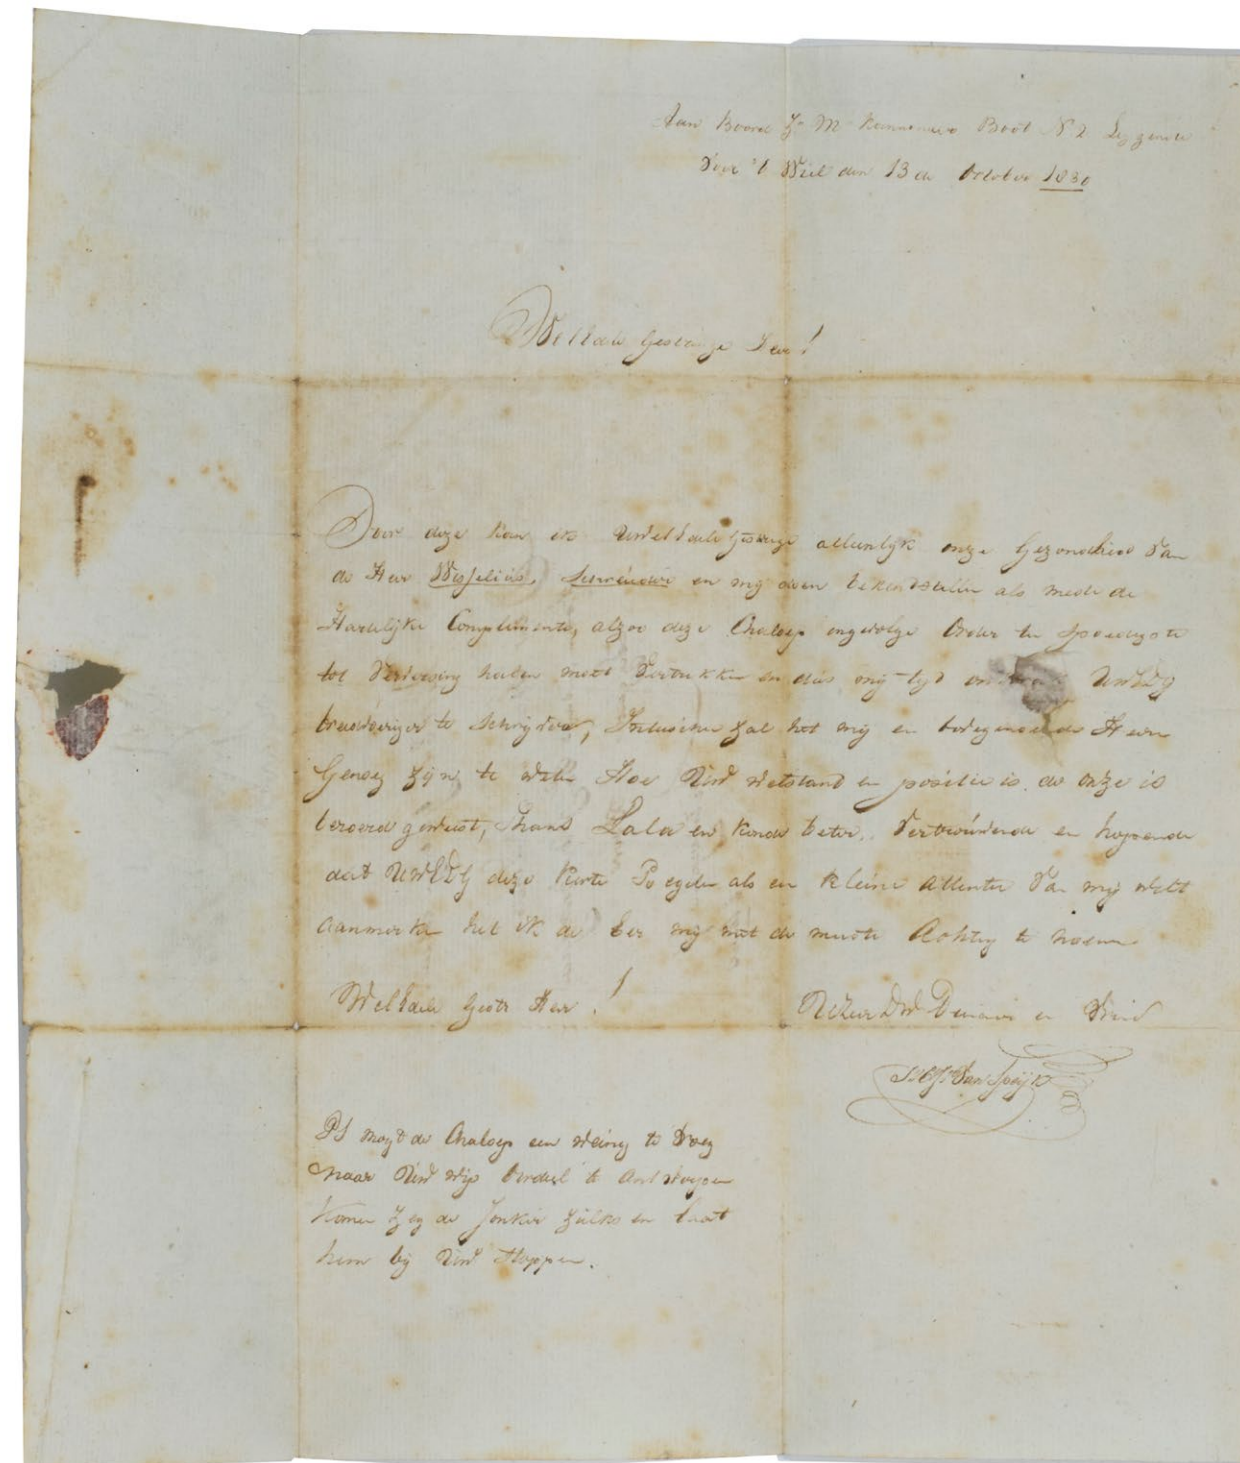 Aan Boord Zr M Kannonneer Boot N 2 Leggende
voor 't Wiel den 13 de October 1830
WelEdele Gestrenge Heer!
Door deze kan ik UwelEdele Gestrenge alleenlyk onze Gezondheid van
de Heer Wisselius, en my doen bekendstellen als mede de
Hartelyke Complimente, alzoo deze Chaloep ingevolge Order ten spoedigste
tot moet vertrekken en dus my tyd UwEDG
te schryven, Intusschen zal het my en Heeren
Genoeg zyn te weten Hoe Uwe welstand en positie is. de onze is
beroerd geweest, thans Lala en konde beter. Vertrouwende en hopende
dat UwEDG deze korte Regelen als een kleine attentie van my welt
aanmerken heb ik de Eer my met de meeste Achting te noemen
WelEdele Gestr Heer!
UwEdw Dienaar en Vriend
J.C.J. Van Speijk
PS mogt de Chaloep een weinig te vroeg
naar Uw wys oordeel te Antwerpen
komen zeg de Jonker zulks en laat
hem by Uw stoppen.